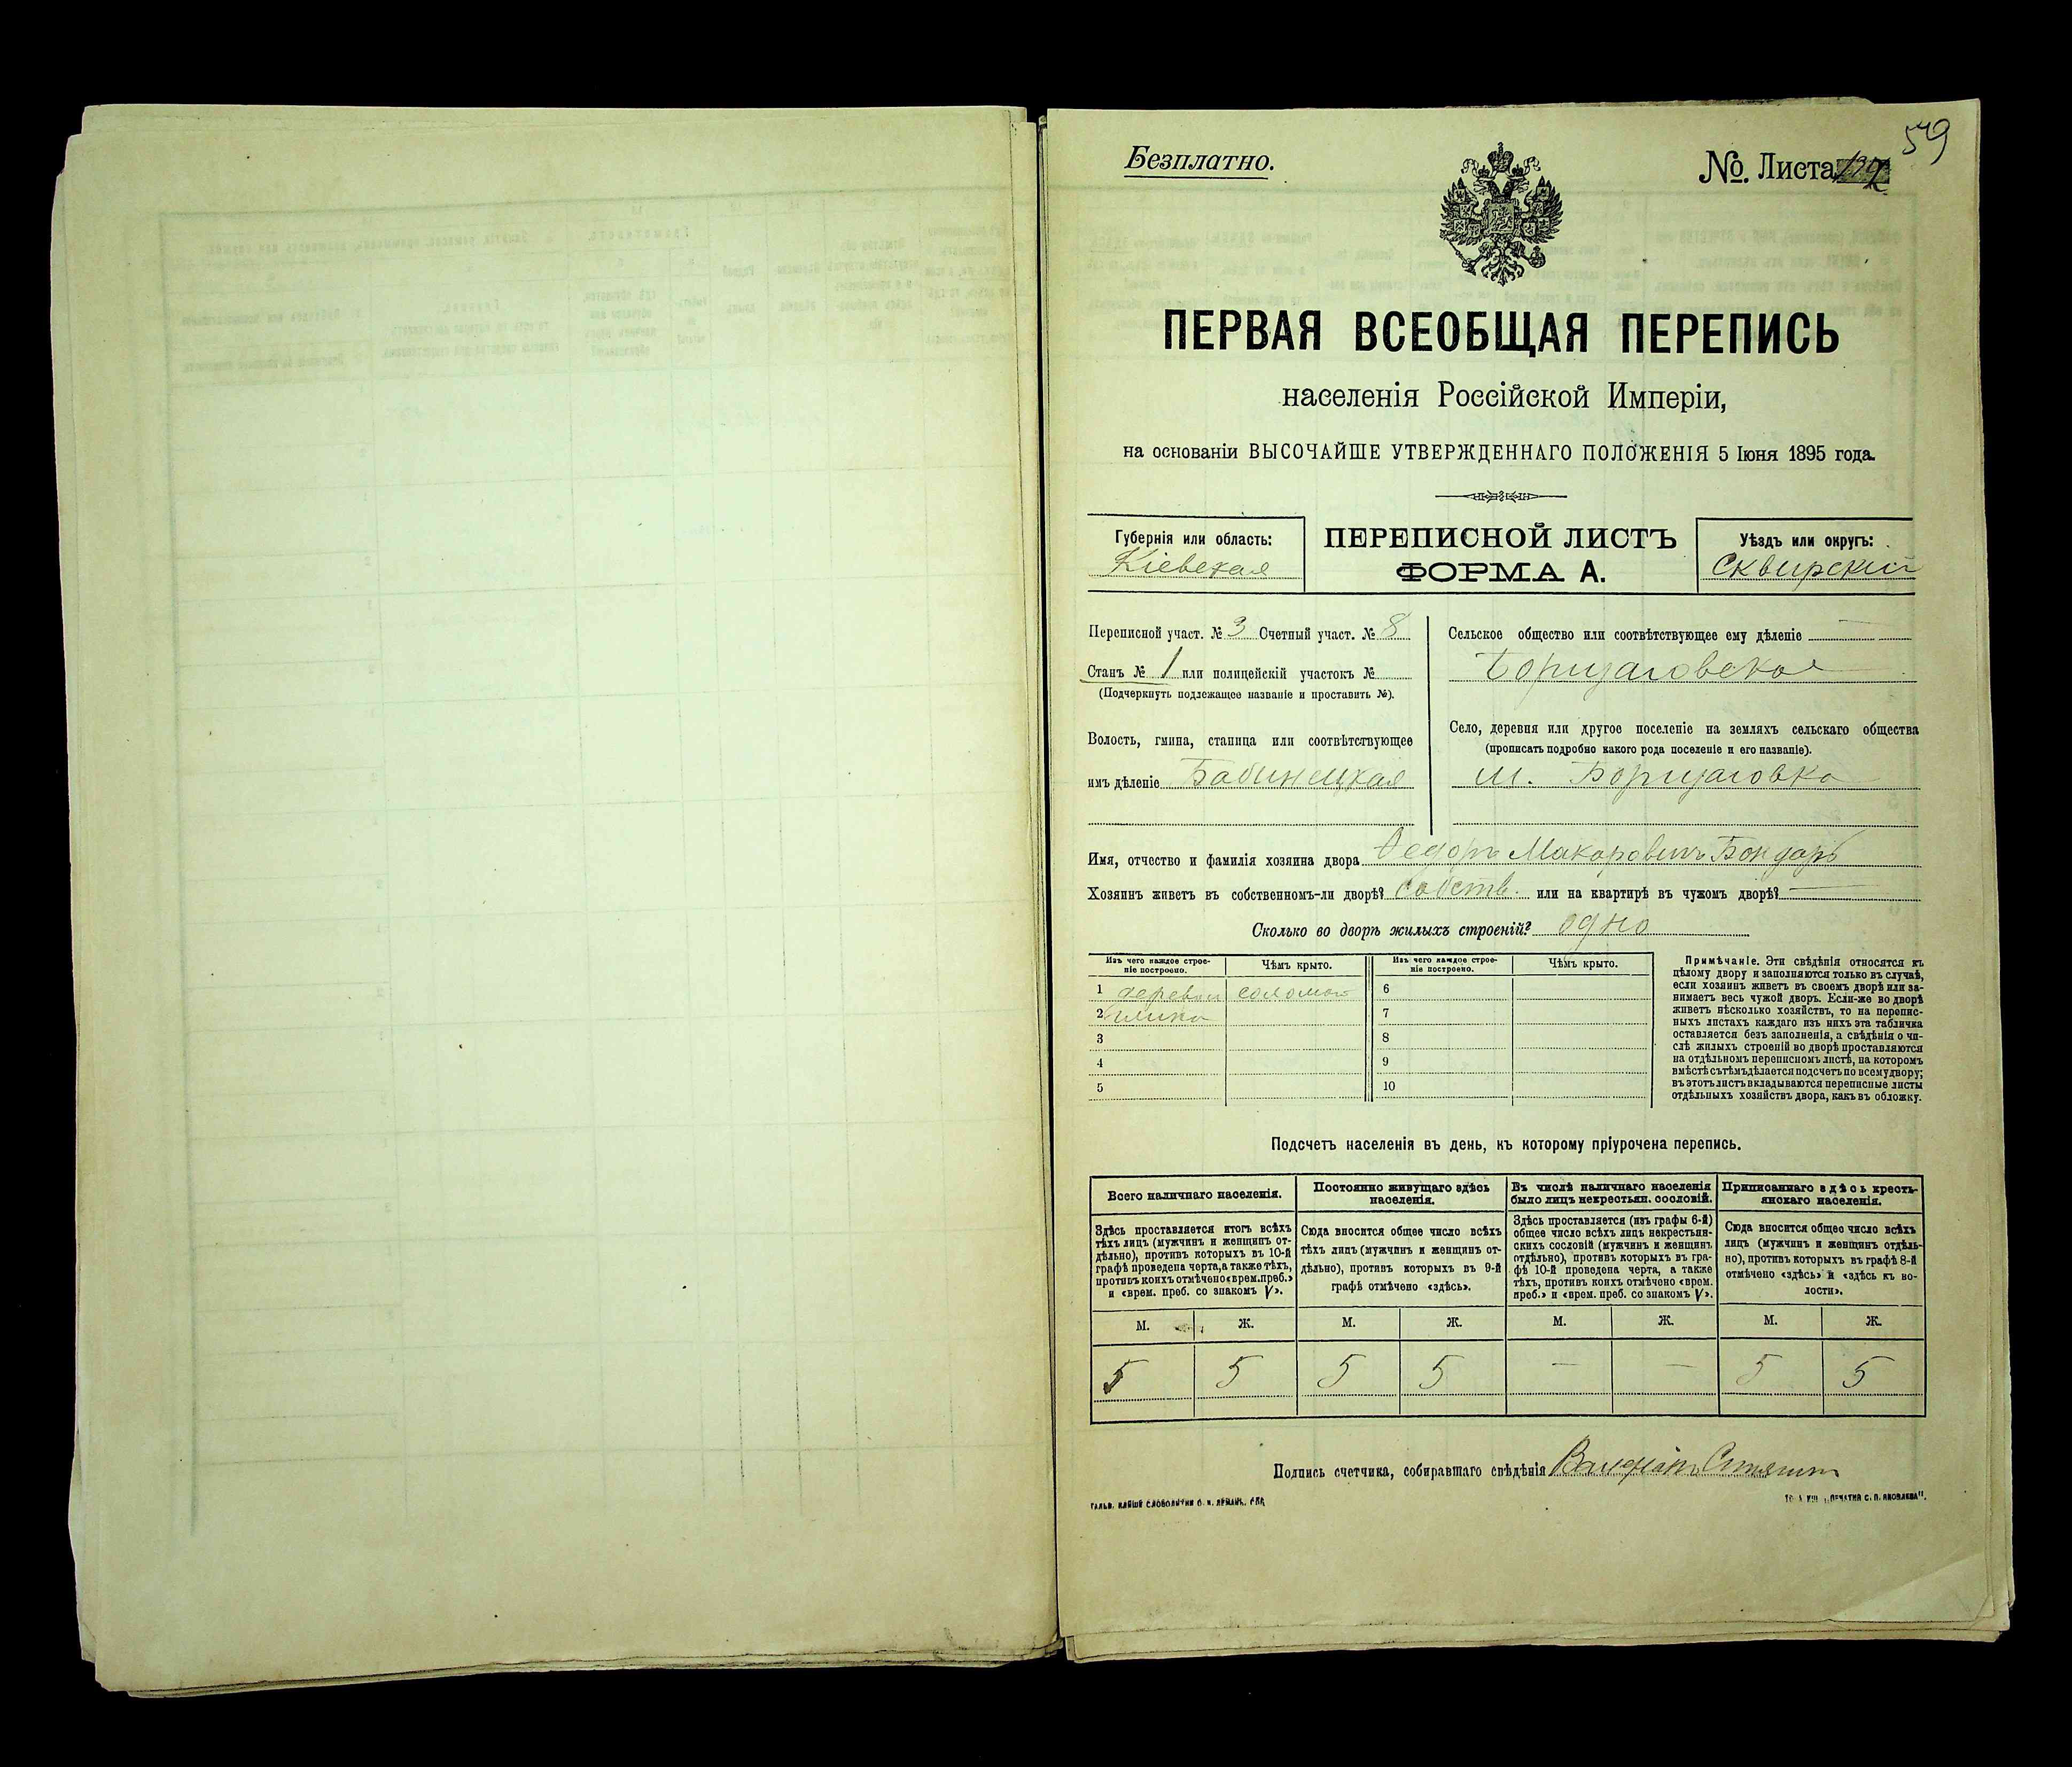 59
Безплатно.
№. Листа
ПЕРВАЯ ВСЕОБЩАЯ ПЕРЕПИСЬ
населенія Россійской Имперіи,
на основаніи ВЫСОЧАЙШЕ УТВЕРЖДЕННАГО ПОЛОЖЕНІЯ 5 Іюня 1895 года.
Губернія или область:
Кіевская
ПЕРЕПИСНОЙ ЛИСТЪ
ФОРМА А.
Уѣздъ или округъ:
Сквирскій
Переписной участ. № 3 Счетный участ. № 8
Станъ № 1 или полицейскій участокъ №
(Подчеркнуть подлежащее названіе и проставить №).
Волость, гмина, станица или соотвѣтствующее
имъ дѣленіе Бабинецкая
Сельское общество или соотвѣтствующее ему дѣленіе —
Борщаговское
Село, деревня или другое поселеніе на земляхъ сельскаго общества
(прописать подробно какого рода поселеніе и его названіе).
м. Борщаговка
Имя, отчество и фамилія хозяина двора Ѳедоръ Макаровичъ Бондарь
Хозяинъ живетъ въ собственномъ-ли дворѣ? собств. или на квартирѣ въ чужомъ дворѣ? —
Сколько во дворѣ жилыхъ строеній? одно
Изъ чего каждое строе-
ніе построено.
Чѣмъ крыто.
Изъ чего каждое строе-
ніе построено.
Чѣмъ крыто.
1 соломой 6
2 глина 7
3 8
4 9
5 10
Примѣчаніе. Эти свѣдѣнія относятся къ
цѣлому двору и заполняются только въ случаѣ,
если хозяинъ живетъ въ своемъ дворѣ или за-
нимаетъ весь чужой дворъ. Если-же во дворѣ
живетъ нѣсколько хозяйствъ, то на перепис-
ныхъ листахъ каждаго изъ нихъ эта табличка
оставляется безъ заполненія, а свѣдѣнія о чи-
слѣ жилыхъ строеній во дворѣ проставляются
на отдѣльномъ переписномъ листѣ, на которомъ
вмѣстѣ съ тѣмъ дѣлается подсчетъ по всему двору;
въ этотъ листъ вкладываются переписные листы
отдѣльныхъ хозяйствъ двора, какъ въ обложку.
Подсчетъ населенія въ день, къ которому пріурочена перепись.
Всего наличнаго населенія.
Здѣсь проставляется итогъ всѣхъ
тѣхъ лицъ (мужчинъ и женщинъ от-
дѣльно), противъ которыхъ въ 10-й
графѣ проведена черта, а также тѣхъ,
противъ коихъ отмѣчено «врем. преб.»
и «врем. преб. со знакомъ V».
Постоянно живущаго здѣсь
населенія.
Сюда вносится общее число всѣхъ
тѣхъ лицъ (мужчинъ и женщинъ от-
дѣльно), противъ которыхъ въ 9-й
графѣ отмѣчено «здѣсь».
Въ числѣ наличнаго населенія
было лицъ некрестьян. сословій.
Здѣсь проставляется (изъ графы 6-й)
общее число всѣхъ лицъ некрестьян-
скихъ сословій (мужчинъ и женщинъ
отдѣльно), противъ которыхъ въ гра-
фѣ 10-й проведена черта, а также
тѣхъ, противъ коихъ отмѣчено «врем.
преб.» и «врем. преб. со знакомъ V».
Приписаннаго здѣсь кресть-
янскаго населенія.
Сюда вносится общее число всѣхъ
лицъ (мужчинъ и женщинъ отдѣль-
но), противъ которыхъ въ графѣ 8-й
отмѣчено «здѣсь» и «здѣсь къ во-
лости».
М. Ж. М. Ж. М. Ж. М. Ж.
5 5 5 5 — — 5 5
Подпись счетчика, собиравшаго свѣдѣнія